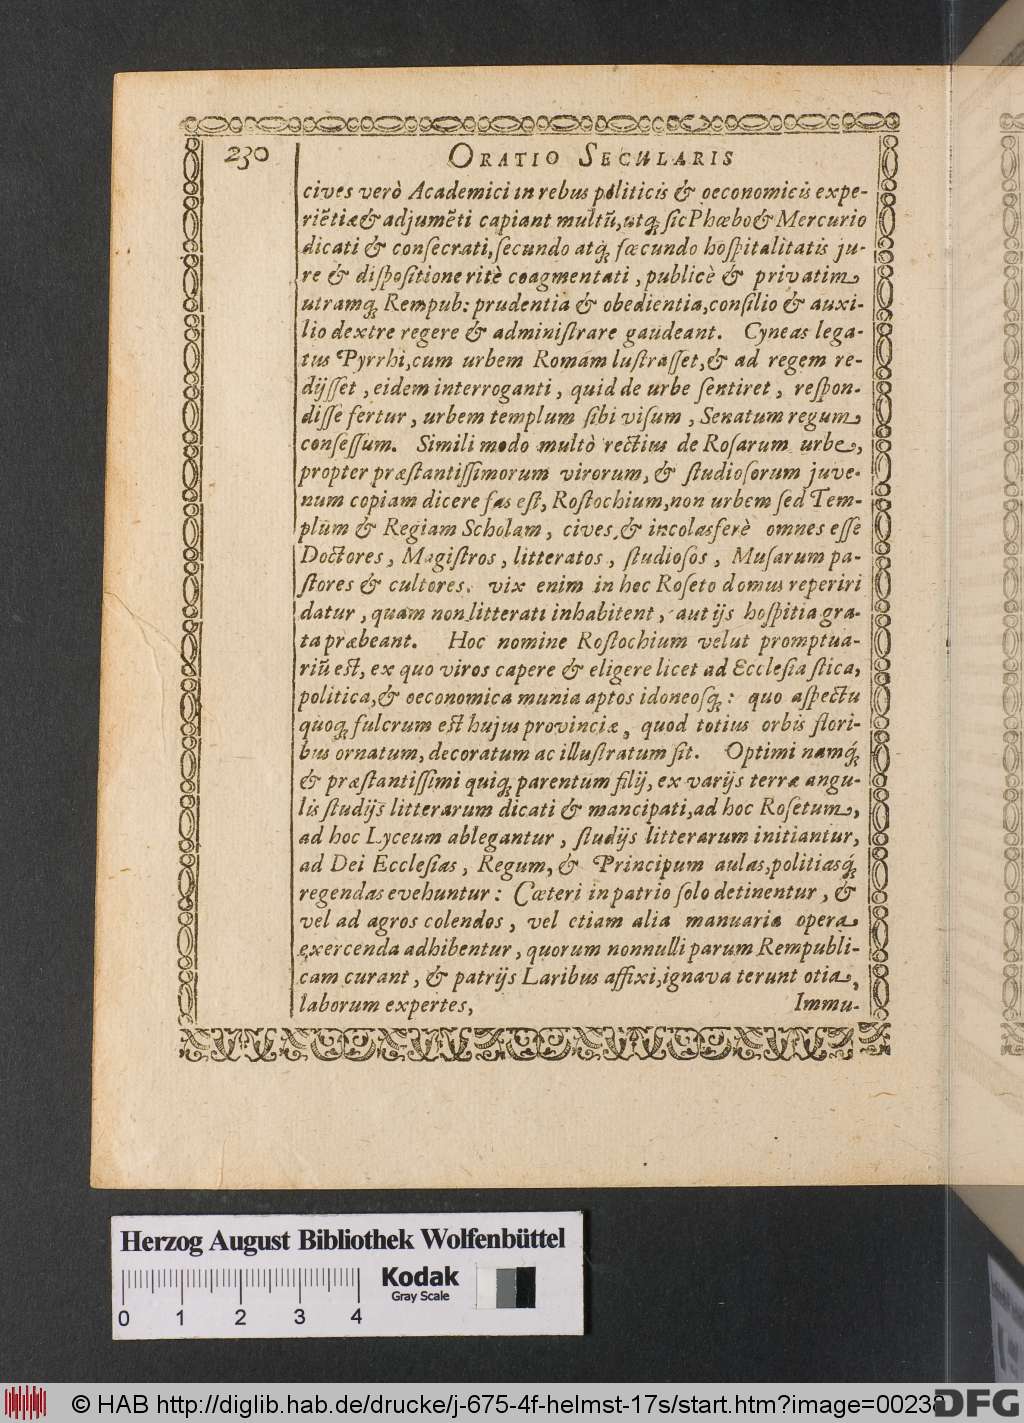 230
ORATIO SECULARIS
cives verò Academici in rebus politicis & oeconomicis expe-
riẽtiæ & adjumẽti capiant multũ, utq; ſic Phœbo & Mercurio
dicati & conſecrati, ſecundo atq́; fœcundo hoſpitalitatis ju-
re & diſpoſitione ritè coagmentati, publicè & privatim
utramq; Rempub: prudentia & obedientia, conſilio & auxi-
lio dextre regere & adminiſtrare gaudeant. Cyneas lega-
tus Pyrrhi, cum urbem Romam luſtraſſet, & ad regem re-
dijſſet, eidem interroganti, quid de urbe ſentiret, reſpon-
diſſe fertur, urbem templum ſibi viſum, Senatum regum
conſeſſum. Simili modo multò rectius de Roſarum urbe,
propter præſtantiſſimorum virorum, & ſtudioſorum juve-
num copiam dicere fas eſt, Roſtochium, non urbem ſed Tem-
plum & Regiam Scholam, cives & incolas ferè omnes eſſe
Doctores, Magiſtros, litteratos, ſtudioſos, Muſarum pa-
ſtores & cultores. vix enim in hoc Roſeto domus reperiri
datur, quam non litterati inhabitent, aut ijs hoſpitia gra-
ta præbeant. Hoc nomine Roſtochium velut promptua-
riũ eſt, ex quo viros capere & eligere licet ad Eccleſiaſtica,
politica, & oeconomica munia aptos idoneoſq́;: quo aſpectu
quoq; fulcrum eſt hujus provinciæ, quod totius orbis flori-
bus ornatum, decoratum ac illuſtratum ſit. Optimi namq́;
& præſtantiſſimi quiq; parentum filij, ex varijs terræ angu-
lis ſtudijs litterarum dicati & mancipati, ad hoc Roſetum,
ad hoc Lyceum ablegantur, ſtudijs litterarum initiantur,
ad Dei Eccleſias, Regum, & Principum aulas, politiasq́;
regendas evehuntur: Cæteri in patrio ſolo detinentur, &
vel ad agros colendos, vel etiam alia manuaria opera
exercenda adhibentur, quorum nonnulli parum Rempubli-
cam curant, & patrijs Laribus affixi, ignava terunt otia,
laborum expertes,
Immu-
Herzog August Bibliothek Wolfenbüttel
Kodak
Gray Scale
0 1 2 3 4
© HAB http://diglib.hab.de/drucke/j-675-4f-helmst-17s/start.htm?image=00238
DFG